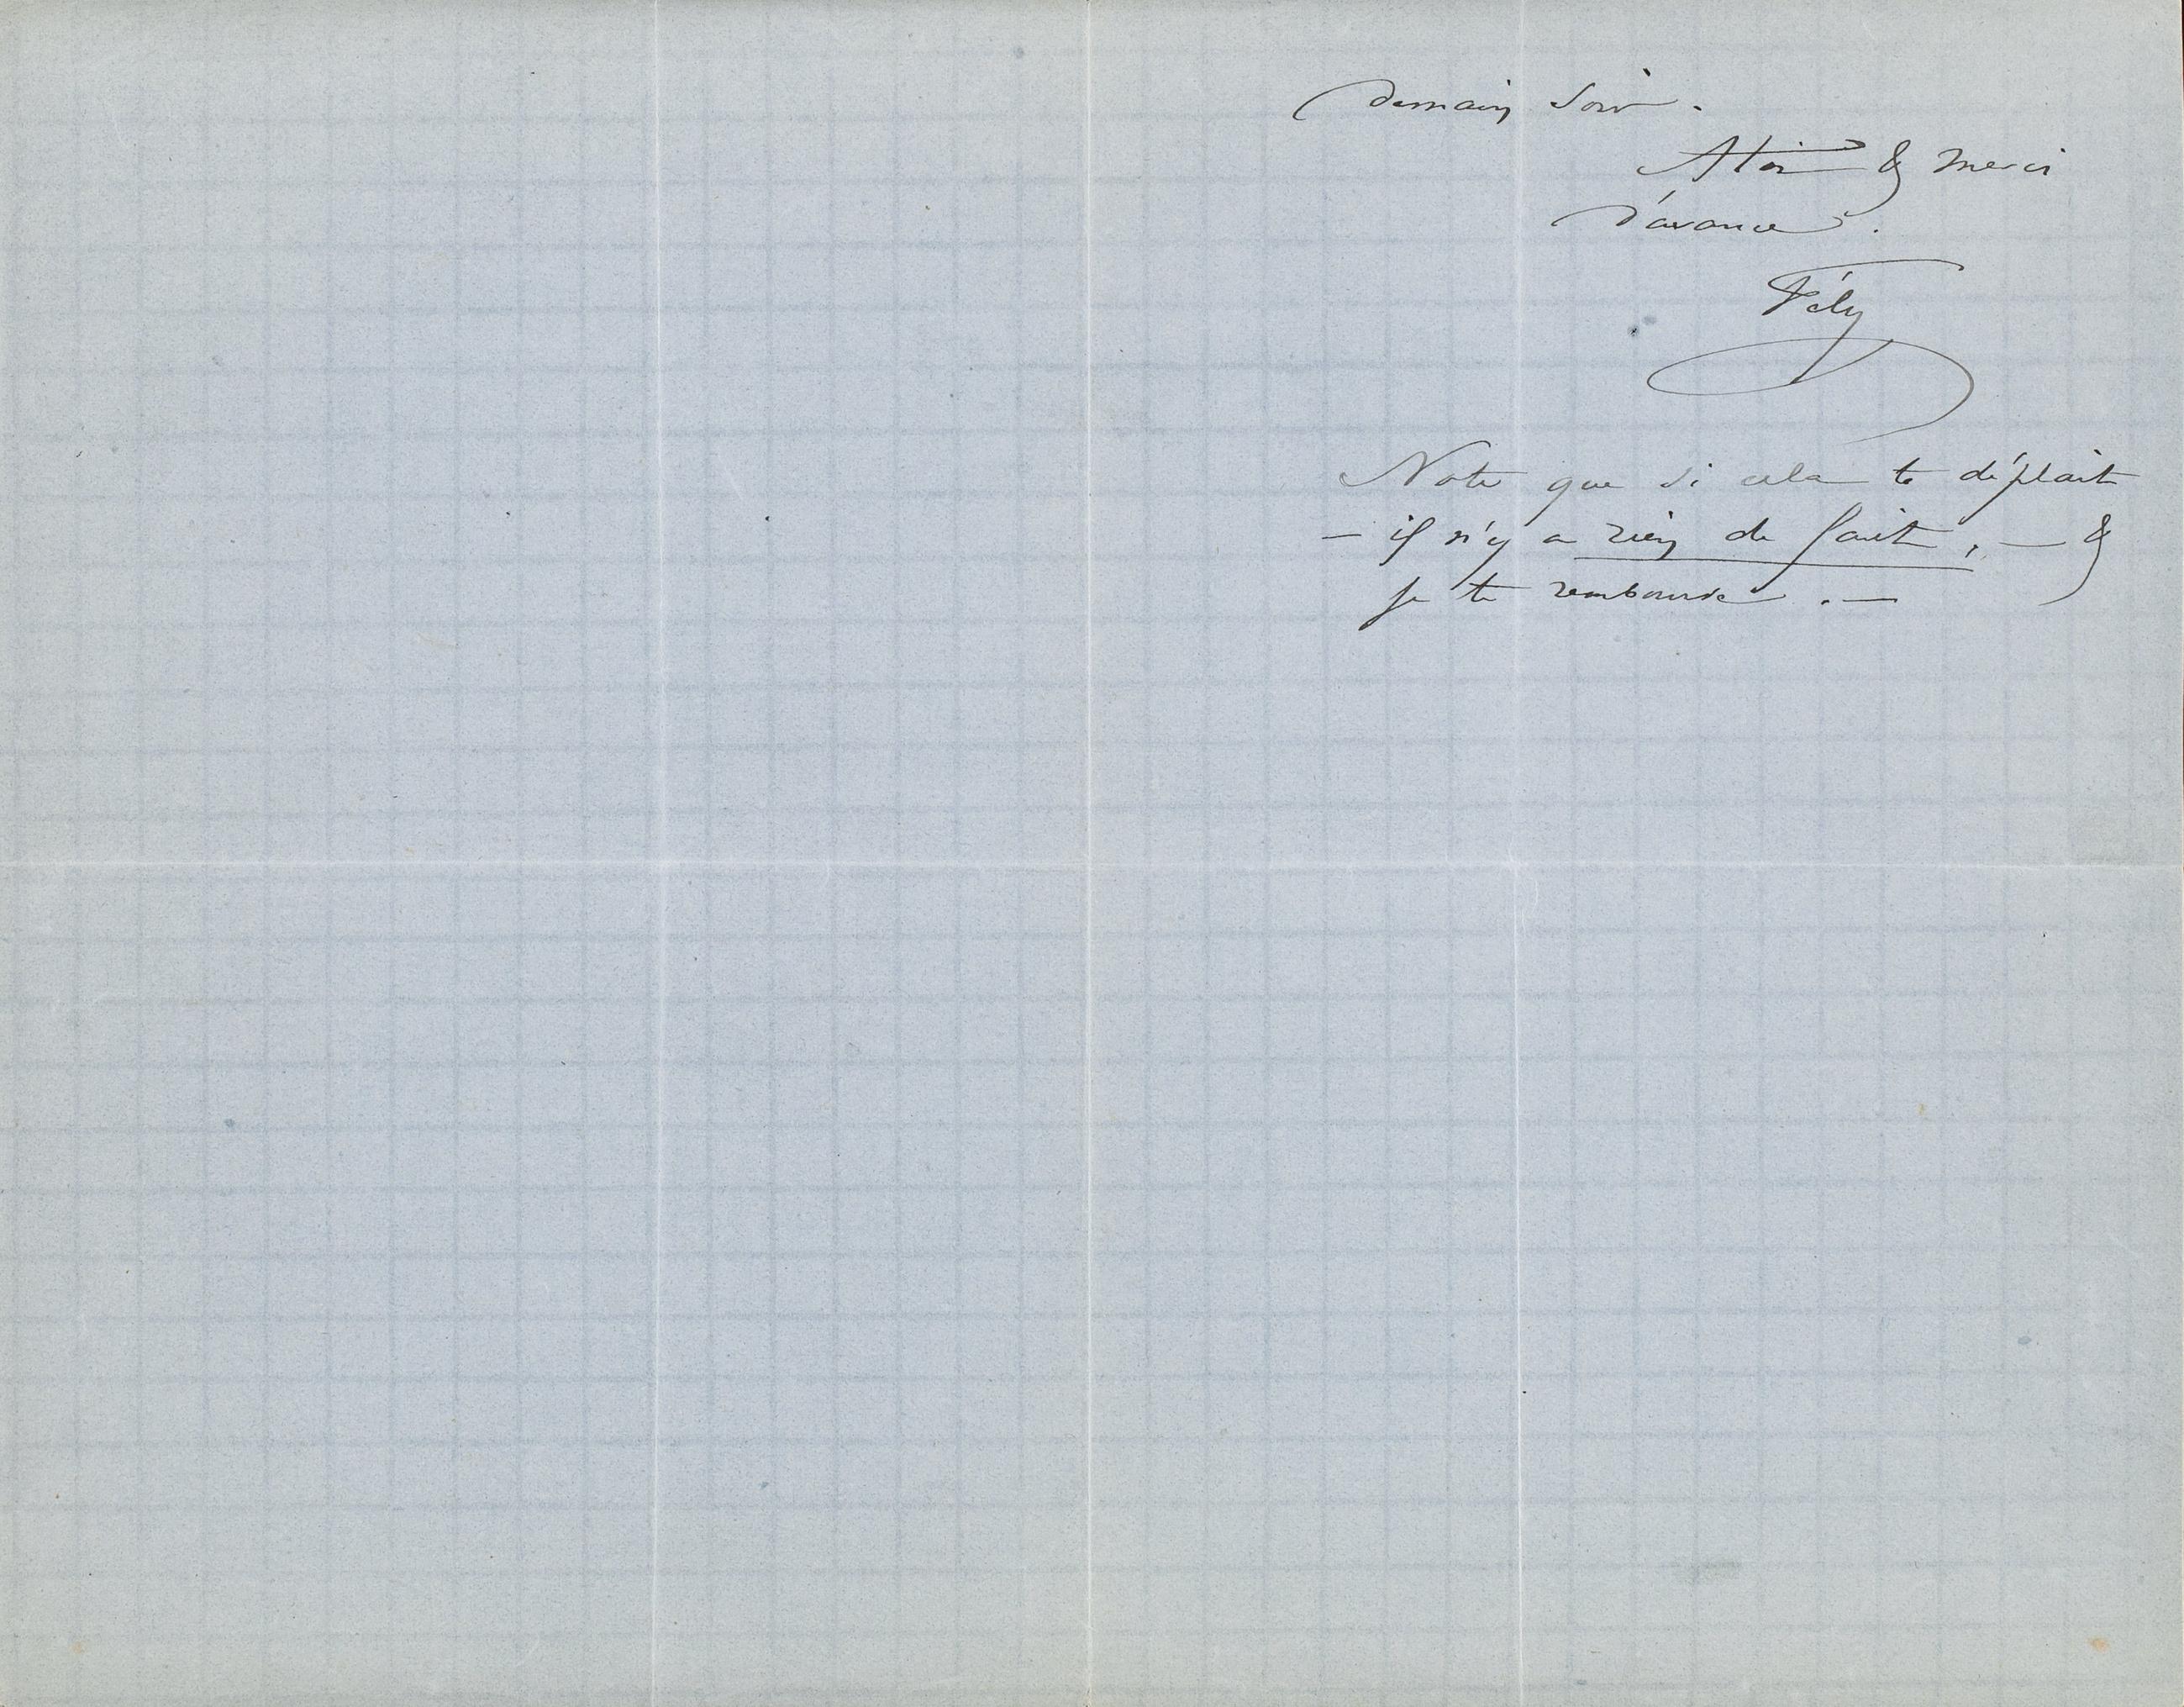 demain soir.
A toi & merci
d'avance.
Fély
Note que si cela te déplait
— il n'y a rien de fait, — &
je te rembourse. —